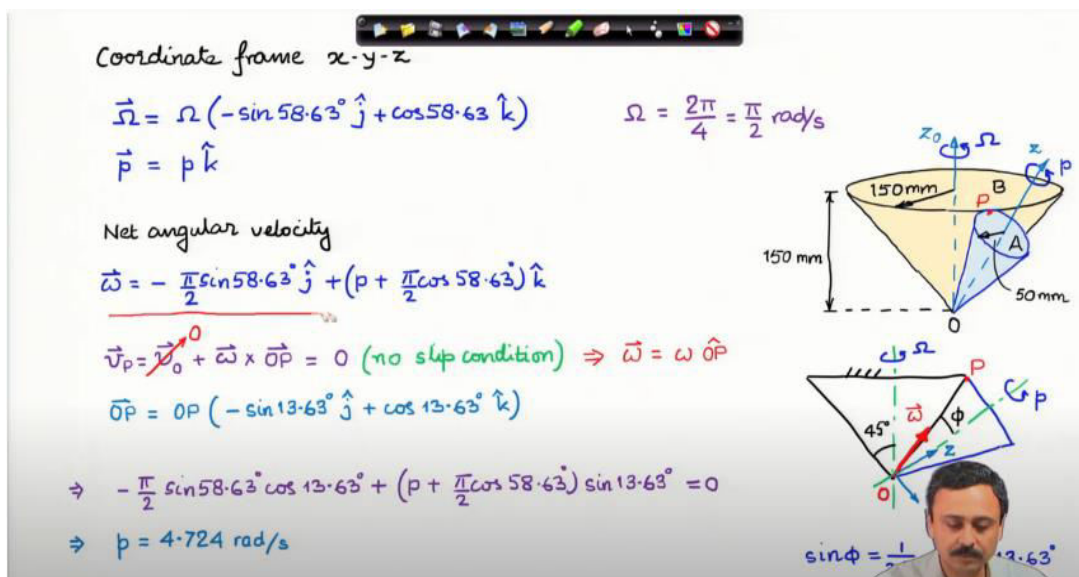 Coordinate frame x-y-z
Ω⃗ = Ω(-sin 58.63° ĵ + cos 58.63 k̂)
Ω = 2π/4 = π/2 rad/s
p⃗ = p k̂
Net angular velocity
ω⃗ = - π/2 sin 58.63° ĵ + (p + π/2 cos 58.63°) k̂
v⃗_P = v⃗_0 0 + ω⃗ × OP⃗ = 0 (no slip condition) ⇒ ω⃗ = ω OP̂
OP⃗ = OP(-sin 13.63° ĵ + cos 13.63° k̂)
⇒ - π/2 sin 58.63° cos 13.63° + (p + π/2 cos 58.63°) sin 13.63° = 0
⇒ p = 4.724 rad/s
z₀ Ω z p
150mm P B
A
150 mm
50mm
O
Ω
P
ω⃗ φ p
45°
z
O
sin φ = 1/ 13.63°